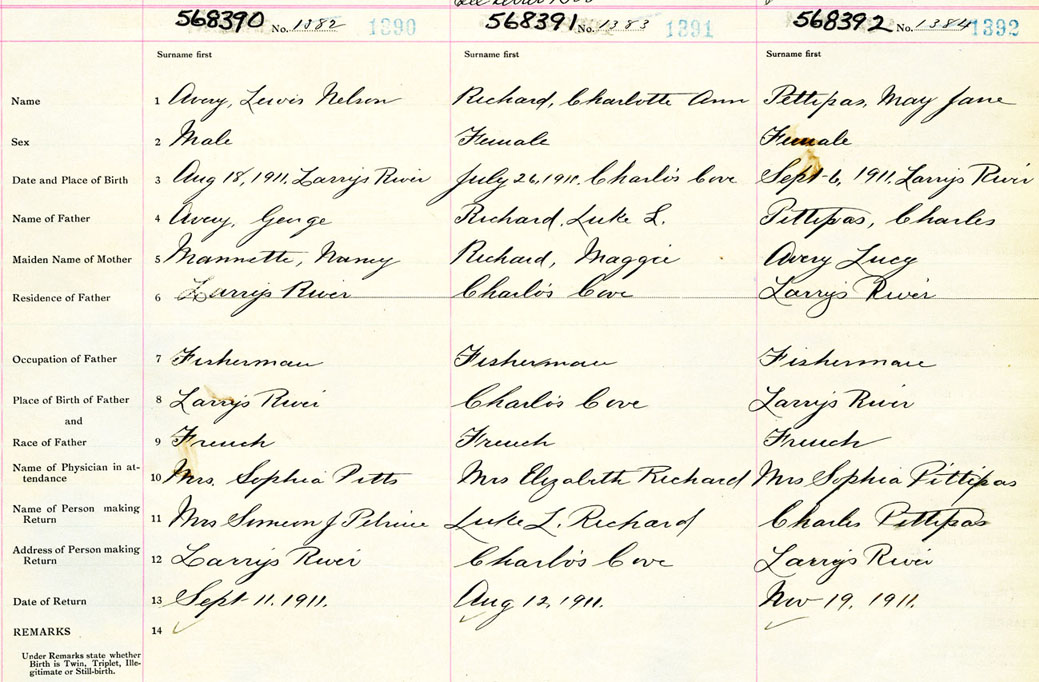 568390 No. 1382 1390 568391 No. 1383 1391 568392 No. 1384 1392
Surname first Surname first Surname first
Name 1 Avery, Lewis Nelson Richard, Charlotte Ann Pettipas, May Jane
Sex 2 Male Female Female
Date and Place of Birth 3 Aug 18, 1911, Larry's River July 26, 1911, Charlo's Cove Sept 6, 1911, Larry's River
Name of Father 4 Avery, George Richard, Luke L. Pettipas, Charles
Maiden Name of Mother 5 Mannette, Nancy Richard, Maggie Avery Lucy
Residence of Father 6 Larry's River Charlo's Cove Larry's River
Occupation of Father 7 Fisherman Fisherman Fisherman
Place of Birth of Father 8 Larry's River Charlo's Cove Larry's River
and
Race of Father 9 French French French
Name of Physician in at-
tendance 10 Mrs. Sophia Petts Mrs Elizabeth Richard Mrs Sophia Pittipas
Name of Person making
Return 11 Mrs Simeon J Pelrine Luke L. Richard Charles Pettipas
Address of Person making
Return 12 Larry's River Charlo's Cove Larry's River
Date of Return 13 Sept 11. 1911. Aug 12, 1911. Nov 19, 1911.
REMARKS 14
Under Remarks state whether
Birth is Twin, Triplet, Ille-
gitimate or Still-birth.